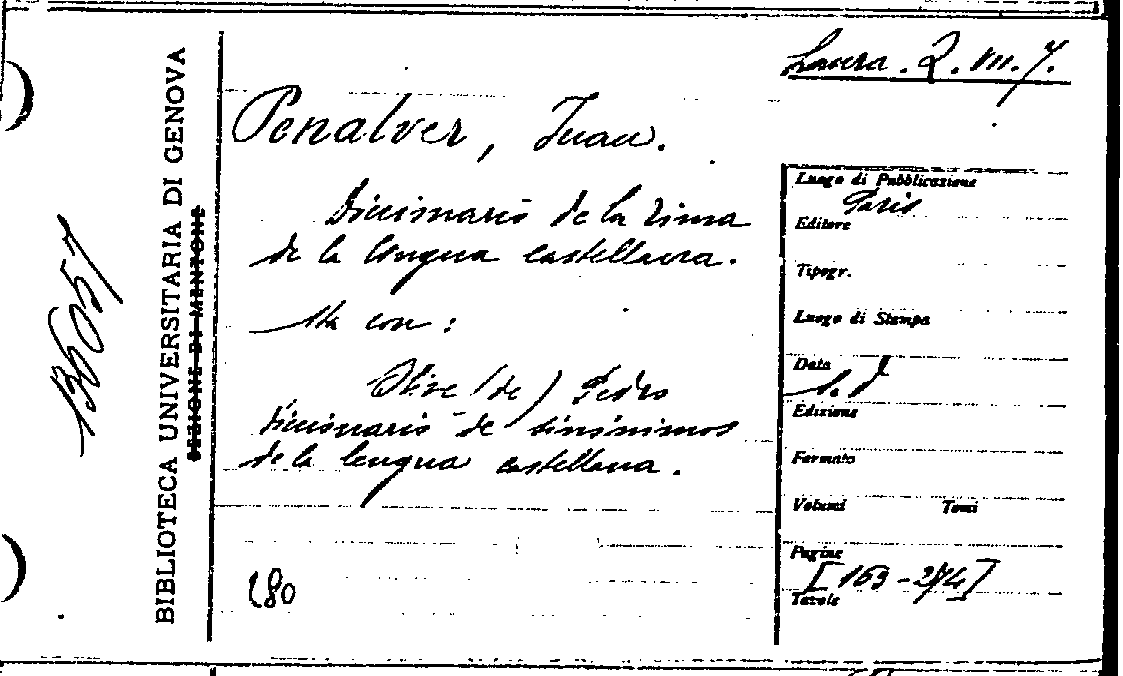 Laura. 2. III. 7.
Penalver, Juan.
Diccionario de la rima
de la lengua castellana.
Sta con:
Olive (de) Pedro
Diccionario de sinonimos
de la lengua castellana.
180
136057
BIBLIOTECA UNIVERSITARIA DI GENOVA
SEZIONE DI MENTONE
Luogo di Pubblicazione
Paris
Editore
Tipogr.
Luogo di Stampa
Data
s. d
Edizione
Formato
Volumi Tomi
Pagine
[163-274]
Tavole